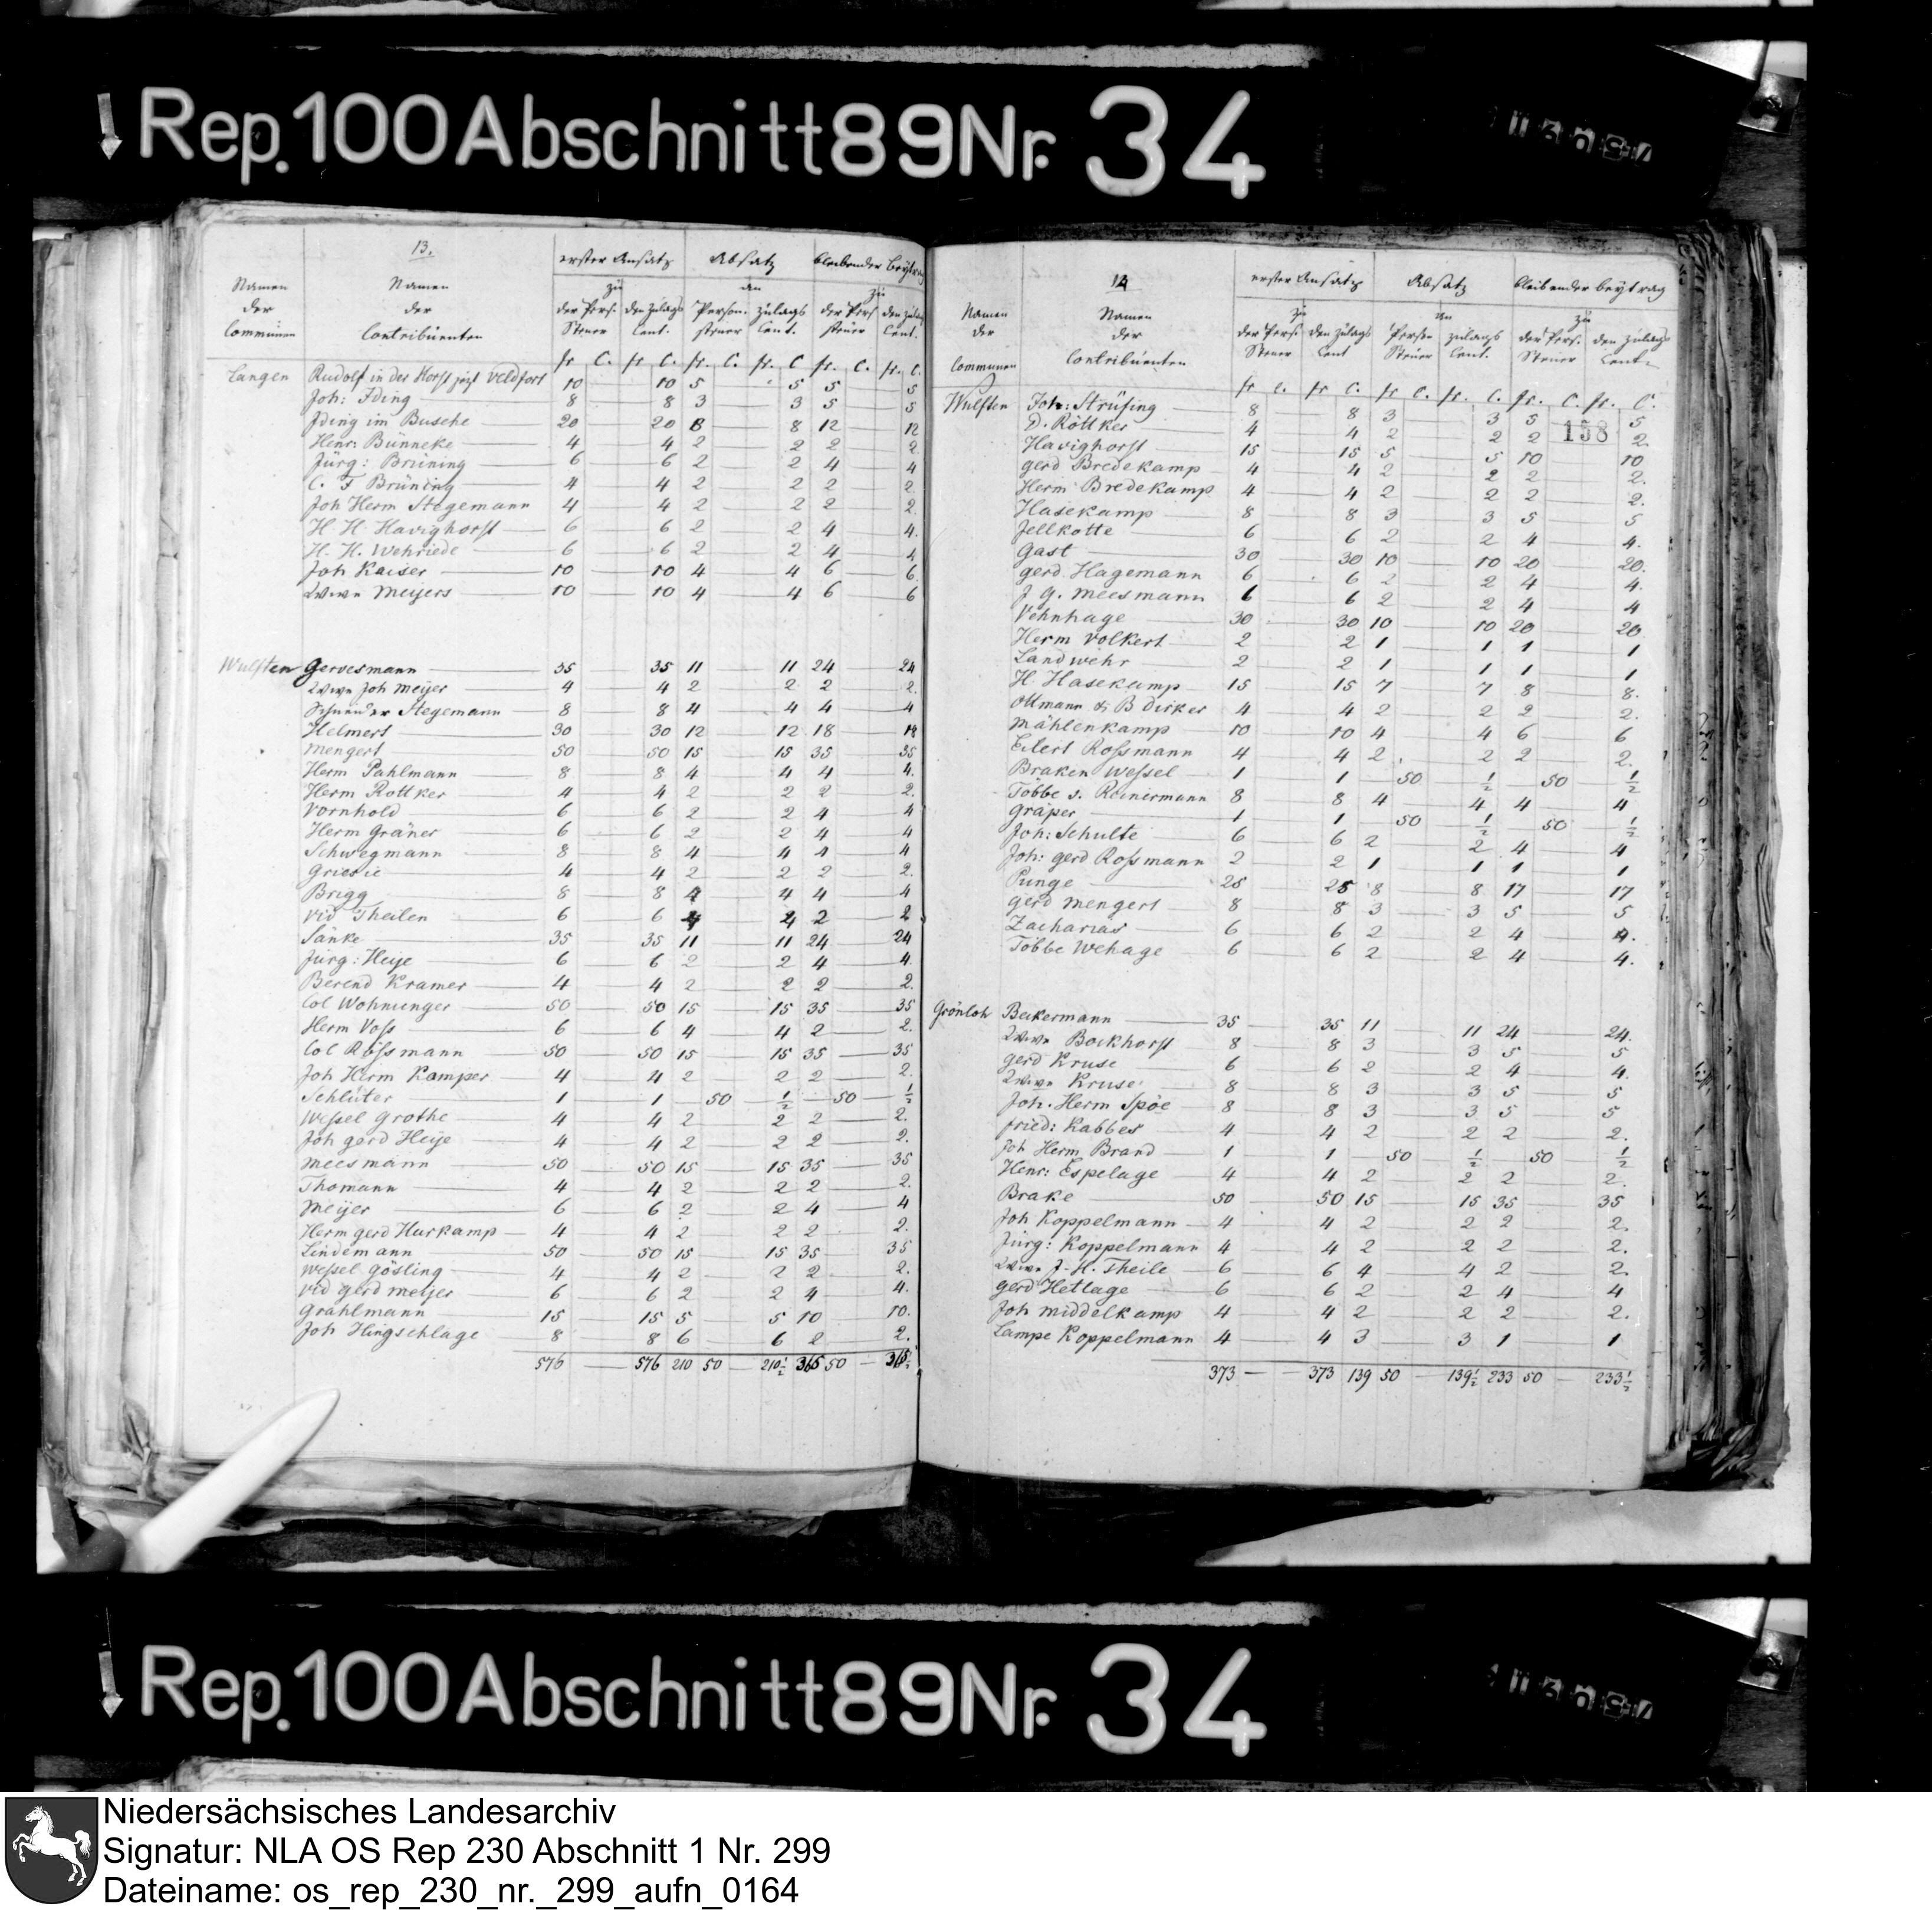 Rep. 100 Abschnitt 89 Nr. 34
13.
Namen der Communen
Namen der Contribuenten
erster Ansatz
Absatz
bleibender Beytrag
zu
an
zu
der Pers. Steuer
den Zulags Cent.
Person. steuer
zulags Cent.
der Pers steuer
den zulags Cent.
fr C. fr C. fr. C. fr. C fr. C. fr. C.
Langen Rudolf in der Horst jezt Veldfort 10 10 5 5 5 5
Joh: Iding 8 8 3 3 5 5
Iding im Busche 20 20 8 8 12 12
Henr: Bünneke 4 4 2 2 2 2
Jürg: Brüning 6 6 2 2 4 4
C. F Brüning 4 4 2 2 2 2
Joh Herm Stegemann 4 4 2 2 2 2.
H H Havighorst 6 6 2 2 4 4.
H. H. Wehriede 6 6 2 2 4 4
Joh Kaiser 10 10 4 4 6 6
Wwe Meijers 10 10 4 4 6 6
Wulften Gervesmann 35 35 11 11 24 24
Wwe Joh Meijer 4 4 2 2 2 2.
Schneider Stegemann 8 8 4 4 4 4
Helmert 30 30 12 12 18 18
Mengert 50 50 15 15 35 35
Herm Pahlmann 8 8 4 4 4 4.
Herm Rottker 4 4 2 2 2 2.
Vornhold 6 6 2 2 4 4
Herm Gräner 6 6 2 2 4 4
Schwegmann 8 8 4 4 4 4
4 4 2 2 2 2.
Brigg 8 8 4 4 4 4
Vid Theilen 6 6 4 4 2 2
Sänke 35 35 11 11 24 24
Jürg: Heye 6 6 2 2 4 4
Berend Kramer 4 4 2 2 2 2.
Col Wohnunger 50 50 15 15 35 35
Herm Voss 6 6 4 4 2 2.
Col Rössmann 50 50 15 15 35 35
Joh Herm Kamper 4 4 2 2 2 2.
Schlüter 1 1 50 ½ 50 ½
Wessel Grothe 4 4 2 2 2 2.
Joh gerd Heije 4 4 2 2 2 2.
Meesmann 50 50 15 15 35 35
Thomann 4 4 2 2 2 2.
Meijer 6 6 2 2 4 4
Herm gerd Hurkamp 4 4 2 2 2 2.
Lindemann 50 50 15 15 35 35
Wessel Gösling 4 4 2 2 2 2.
Vid gerd Meijer 6 6 2 2 4 4.
Grahlmann 15 15 5 5 10 10.
Joh Hingschlage 8 8 6 6 2 2.
576 576 210 50 210½ 365 50 365½
14
Namen der Communen
Namen der Contribuenten
erster Ansatz
Absatz
bleibender beytrag
zu
an
zu
der Pers. Steuer
den Zulags Cent
Person Steuer
zulags Cent.
der Pers. Steuer
den Zulags Cent.
fr C. fr C. fr C. fr. C. fr. C. fr. C.
Wulften Joh: Strüfing 8 8 3 3 5 5
D. Röttker 4 4 2 2 2 2.
158
Havighorst 15 15 5 5 10 10
gerd Bredekamp 4 4 2 2 2 2.
Herm Bredekamp 4 4 2 2 2 2.
Hasekamp 8 8 3 3 5 5
Jellkotte 6 6 2 2 4 4.
Gast 30 30 10 10 20 20.
gerd Hagemann 6 6 2 2 4 4.
J G. Meesmann 6 6 2 2 4 4
Vehnhage 30 30 10 10 20 20
Herm Volkert 2 2 1 1 1 1
Landwehr 2 2 1 1 1 1
H. Hasekamp 15 15 7 7 8 8.
Ottmann & B dirker 4 4 2 2 2 2.
Mählenkamp 10 10 4 4 6 6
Eilert Rossmann 4 4 2 2 2 2.
Braken Wessel 1 1 50 ½ 50 ½
Többe v. Reinermann 8 8 4 4 4 4
Gräper 1 1 50 ½ 50 ½
Joh: Schulte 6 6 2 2 4 4
Joh: gerd Rossmann 2 2 1 1 1 1
Punge 25 25 8 8 17 17
gerd Mengert 8 8 3 3 5 5
Zacharias 6 6 2 2 4 4.
Többe Wehage 6 6 2 2 4 4.
Grönloh Beckermann 35 35 11 11 24 24.
Wwe Bockhorst 8 8 3 3 5 5
gerd Kruse 6 6 2 2 4 4.
Wwe Kruse 8 8 3 3 5 5
Joh. Herm Spöe 8 8 3 3 5 5
fried: Kabbes 4 4 2 2 2 2.
Joh Herm Brand 1 1 50 ½ 50 ½
Henr: Espelage 4 4 2 2 2 2.
Brake 50 50 15 15 35 35
Joh Koppelmann 4 4 2 2 2 2.
Jürg: Koppelmann 4 4 2 2 2 2.
Wwe J. H. Theile 6 6 4 4 2 2.
gerd Hettage 6 6 2 2 4 4
Joh Middelkamp 4 4 2 2 2 2.
Lampe Koppelmann 4 4 3 3 1 1
373 373 139 50 139½ 233 50 233½
Rep. 100 Abschnitt 89 Nr. 34
Niedersächsisches Landesarchiv
Signatur: NLA OS Rep 230 Abschnitt 1 Nr. 299
Dateiname: os_rep_230_nr._299_aufn_0164